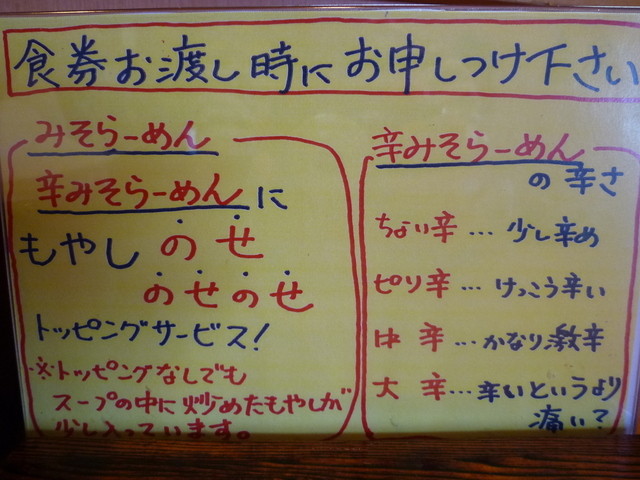 食券お渡し時にお申しつけ下さい
みそらーめん
辛みそらーめんに
もやし のせ
のせのせ
トッピングサービス!
※トッピングなしでも
スープの中に炒めたもやしが
少し入っています。
辛みそらーめん
の辛さ
ちょい辛…少し辛め
ピリ辛…けっこう辛い
中辛…かなり激辛
大辛…辛いというより
痛い?